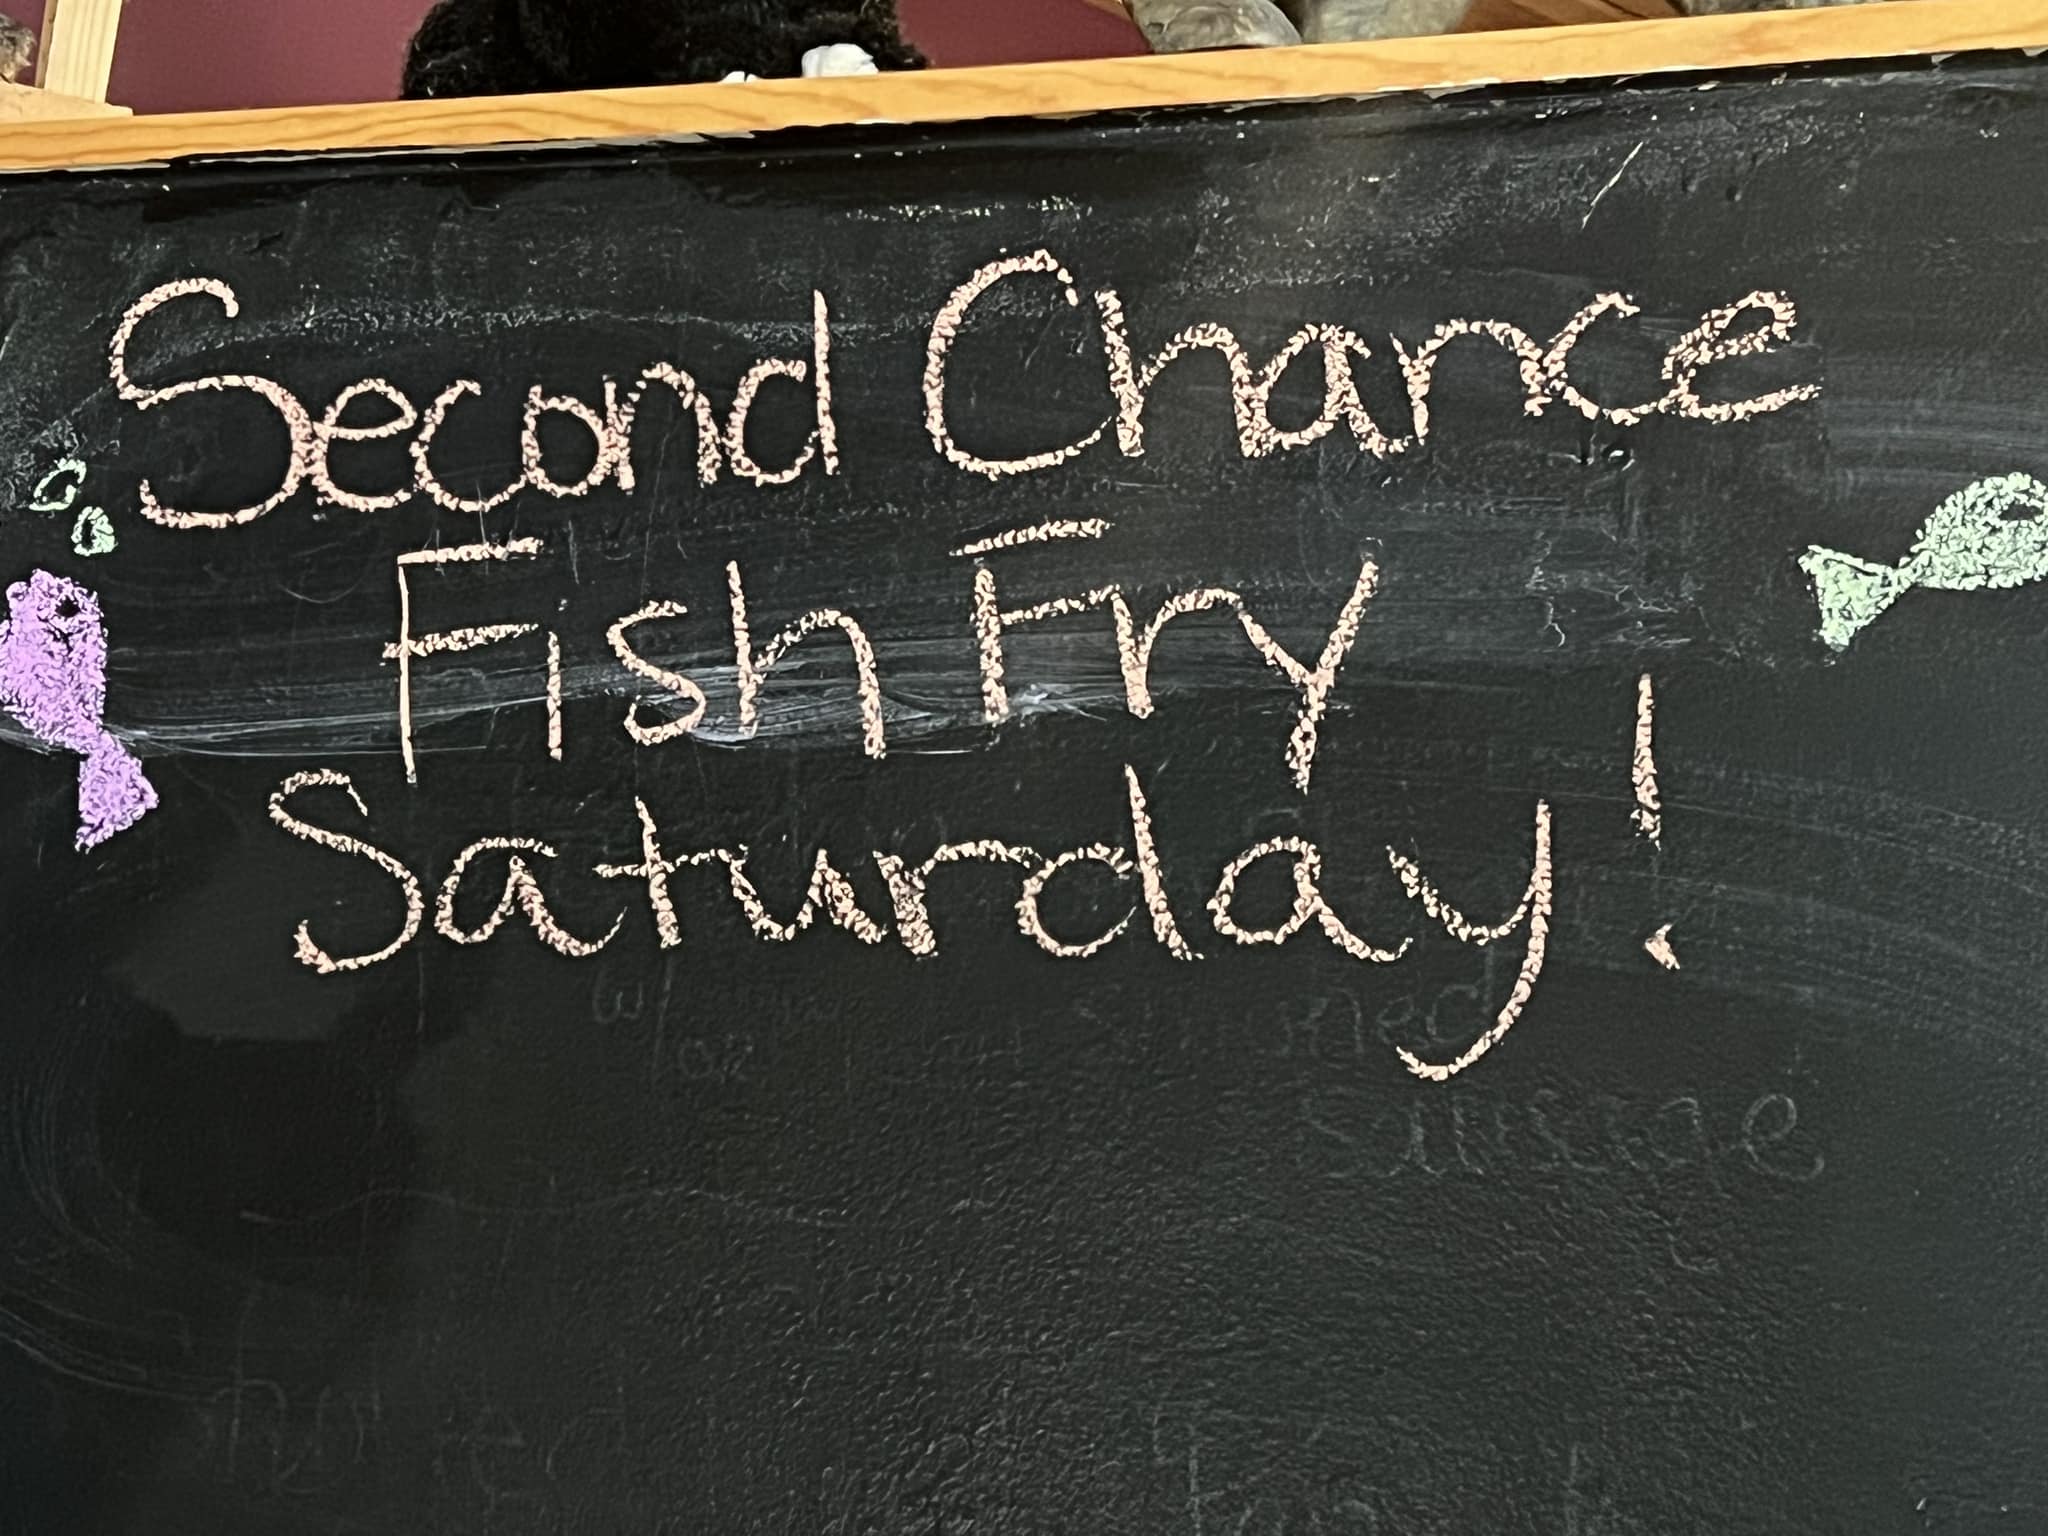 Second Chance
Fish Fry
Saturday!